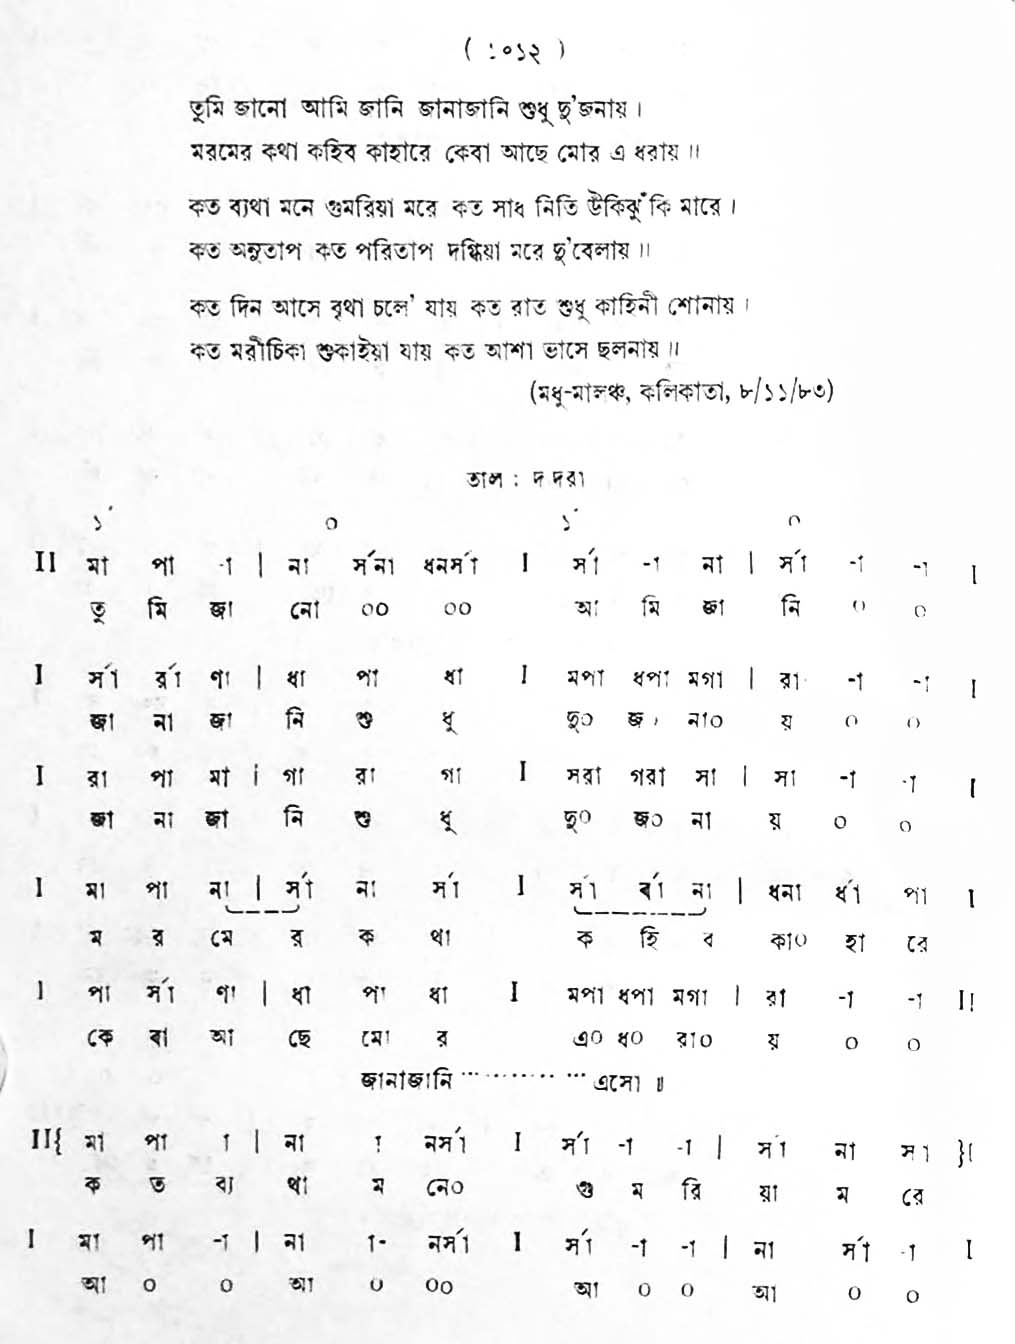 ( ১০১২ )
তুমি জানো আমি জানি জানাজানি শুধু দু'জনায় ।
মরমের কথা কহিব কাহারে কেবা আছে মোর এ ধরায় ॥
কত ব্যথা মনে গুমরিয়া মরে কত সাধ নিতি উকিঝুঁকি মারে ।
কত অনুতাপ কত পরিতাপ দগ্ধিয়া মরে দু'বেলায় ॥
কত দিন আসে বৃথা চলে' যায় কত রাত শুধু কাহিনী শোনায় ।
কত মরীচিকা শুকাইয়া যায় কত আশা ভাসে ছলনায় ॥
(মধু-মালঞ্চ, কলিকাতা, ৮/১১/৮৩)
তাল : দদরা
১´ ০ ১´ ০
II মা পা -া | না র্সনা ধনর্সা I র্সা -া না | র্সা -া -া I
তু মি জা নো ০০ ০০ আ মি জা নি ০ ০
I র্সা র্রা ণা | ধা পা ধা I মপা ধপা মগা | রা -া -া I
জা না জা নি শু ধু দু০ জ০ না০ য় ০ ০
I রা পা মা | গা রা গা I সরা গরা সা | সা -া -া I
জা না জা নি শু ধু দু০ জ০ না য় ০ ০
I মা পা না | র্সা না র্সা I র্সা র্রা না | ধনা র্ধা পা I
ম র মে র ক থা ক হি ব কা০ হা রে
I পা র্সা ণা | ধা পা ধা I মপা ধপা মগা | রা -া -া II
কে বা আ ছে মো র এ০ ধ০ রা০ য় ০ ০
জানাজানি ............ এসো ॥
II{ মা পা া | না া নর্সা I র্সা -া -া | র্সা না র্সা }I
ক ত ব্য থা ম নে০ গু ম রি য়া ম রে
I মা পা -া | না া- নর্সা I র্সা -া -া | না র্সা -া I
আ ০ ০ আ ০ ০০ আ ০ ০ আ ০ ০